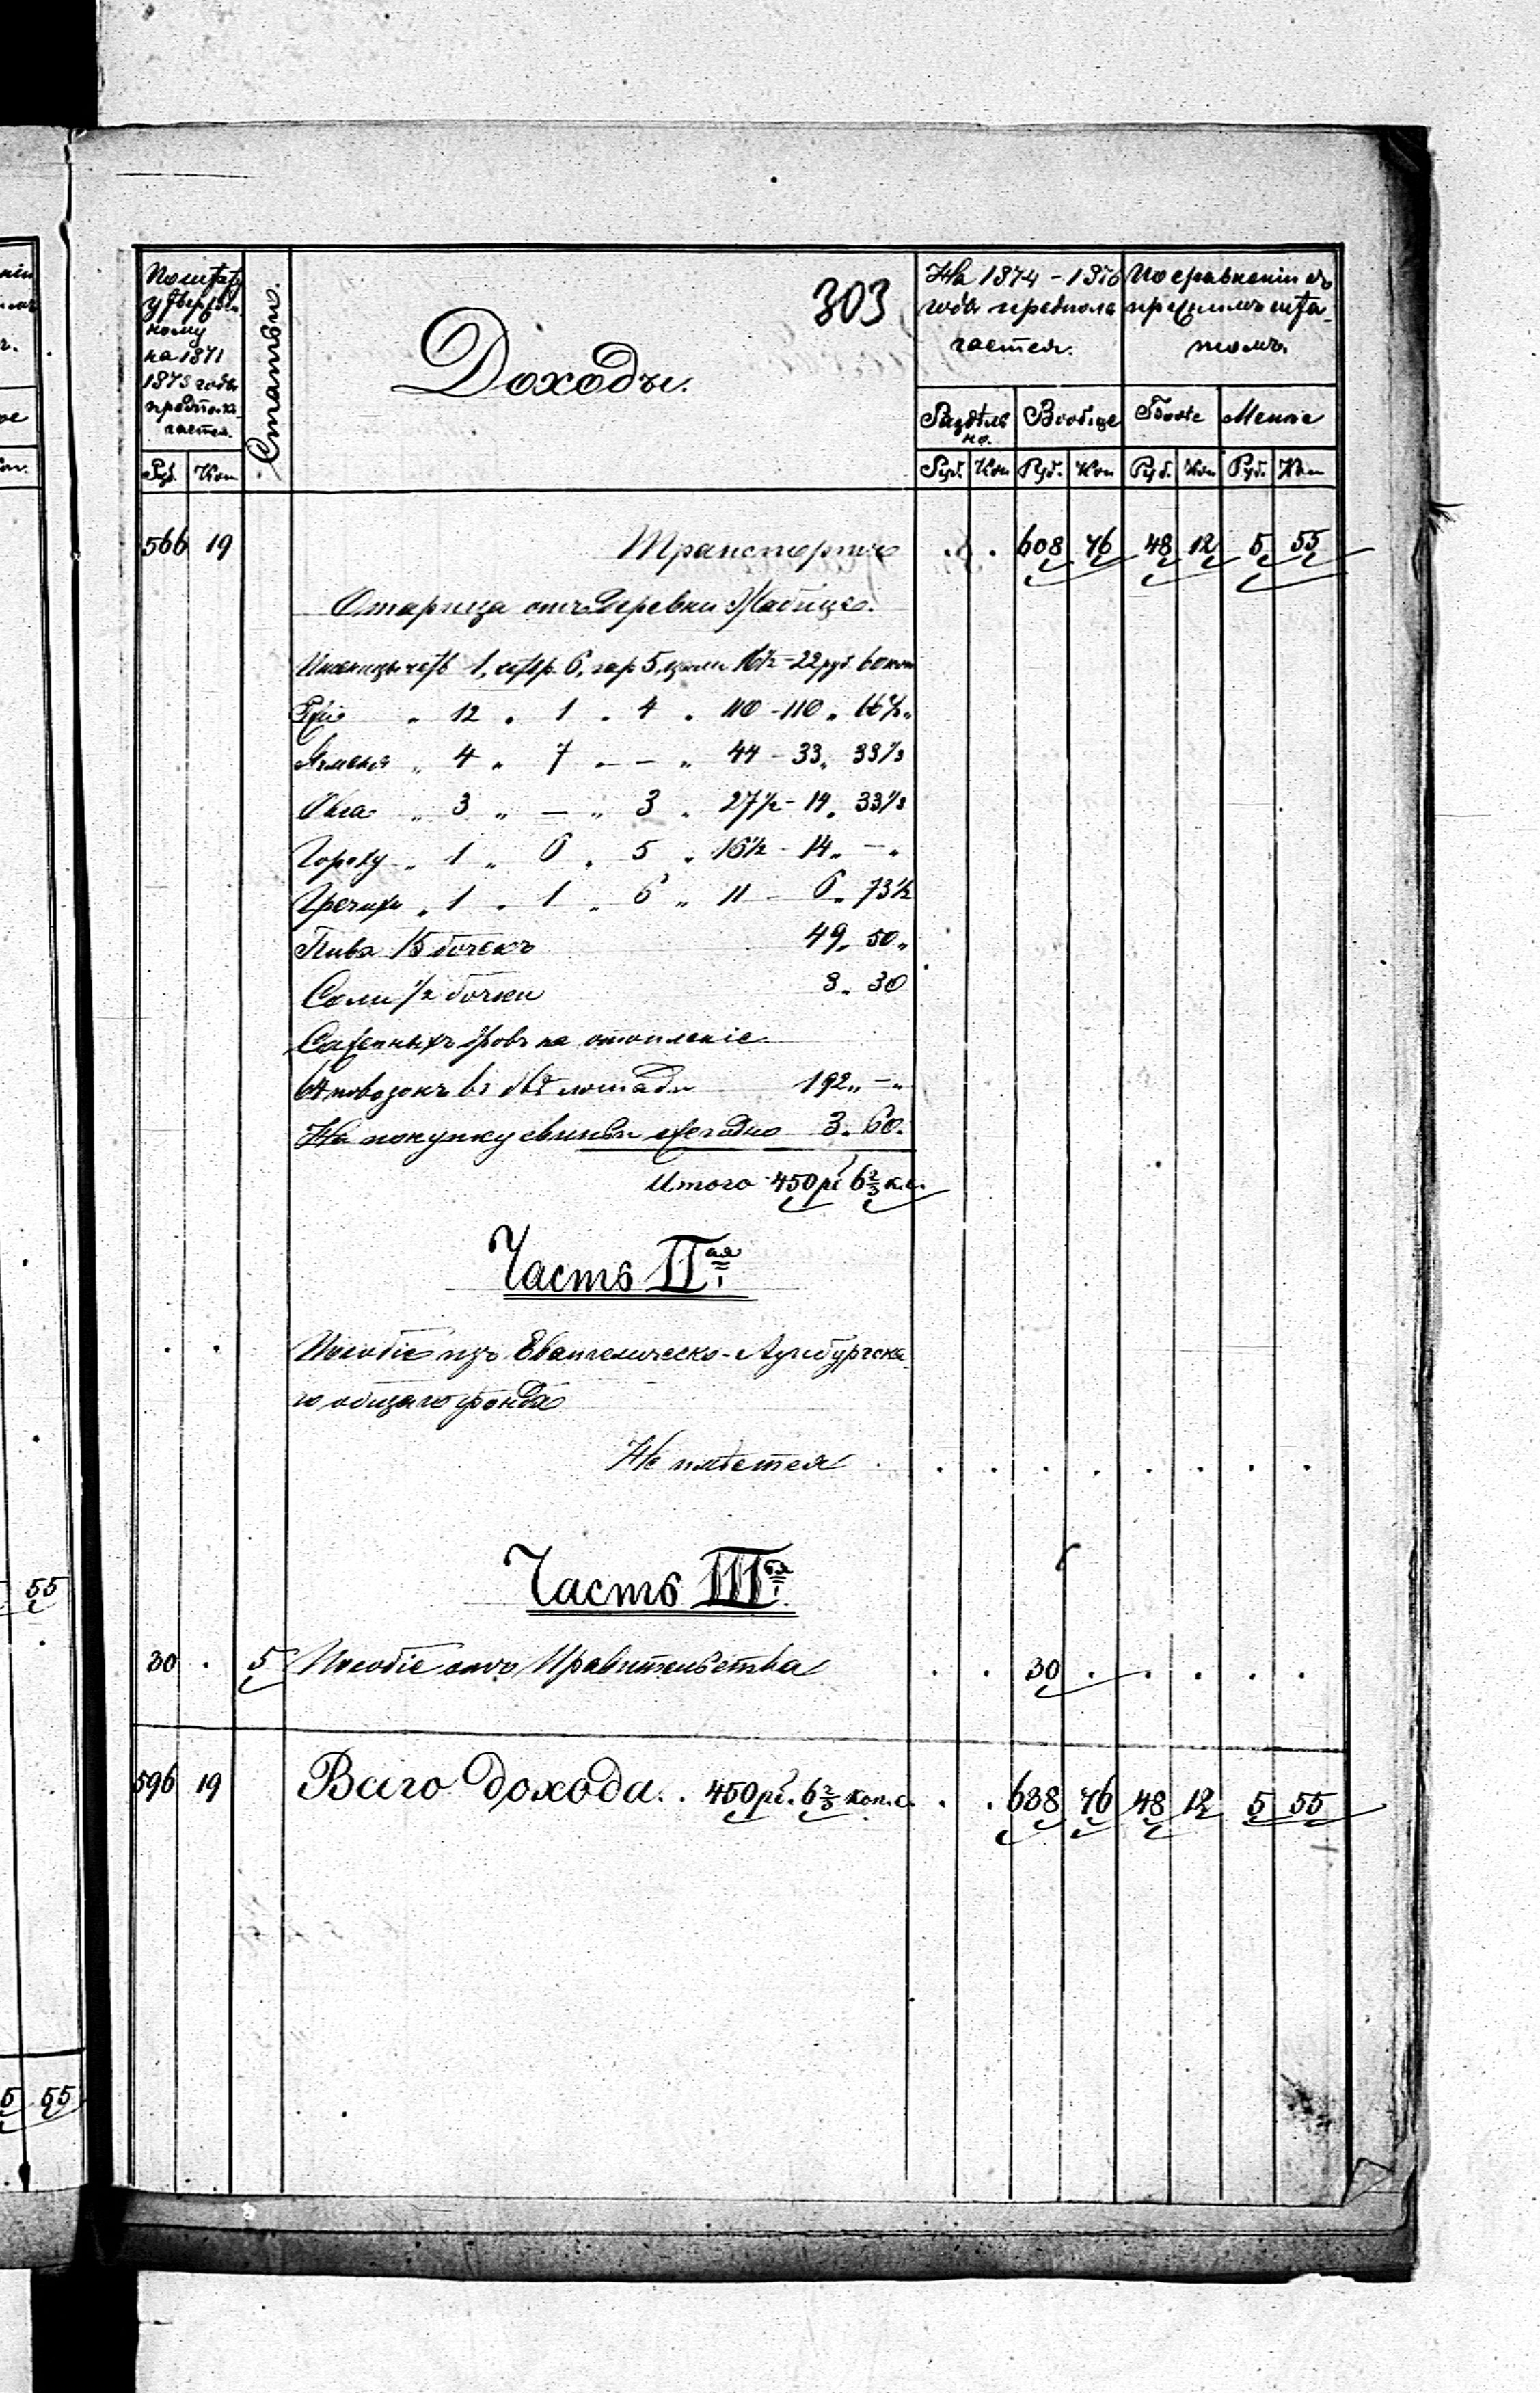 303
По штату
утвержден
ному
на 1871
1873 года
предпола
гается.
Руб. Коп
Статьи.
Доходы.
На 1874 - 1876
года предпола
гается.
По сравненію съ
прежнимъ шта
томъ.
Раздѣль
но. Вообще Болѣе Менѣе
Руб. Коп Руб. Коп Руб. Коп Руб. Коп
566 19 Транспортъ . . 608 76 48 12 5 55
отъ деревни
Пшеницы четв 1, четвр. 6, гар 5, цили 16½ - 22 руб. 60 коп
Ржи " 12 " 1 " 4 " 110 - 110 " 66⅔ "
Ячменя " 4 " 7 " — " 44 - 33 " 33⅓
Овса " 3 " — " 3 " 27½ - 14 " 33⅓
Гороху " 1 " 6 " 5 " 16½ - 14 " — "
Гречихи " 1 " 1 " 6 " 11 - 6 " 73½
Пива 15 бочекъ 49 " 50 "
Соли ½ бочки 3 " 30
Саженныхъ дровъ на отопленіе
64 повозокъ въ двѣ лошади 192 " — "
На покупку свиньи ежегодно 3 " 60 "
Итого 450 р. 6⅔ к.с.
Часть IIая
. . Пособіе изъ Евангелическо-Аугсбургска
го общаго фонда
Не имѣется . . . . . . . . .
Часть IIIья
30 . 5 Пособіе отъ Правительства . . 30 . . . . .
596 19 Всего дохода. . 450 р. 6⅔ коп.с. . . 638 76 48 12 5 55
55
5 55